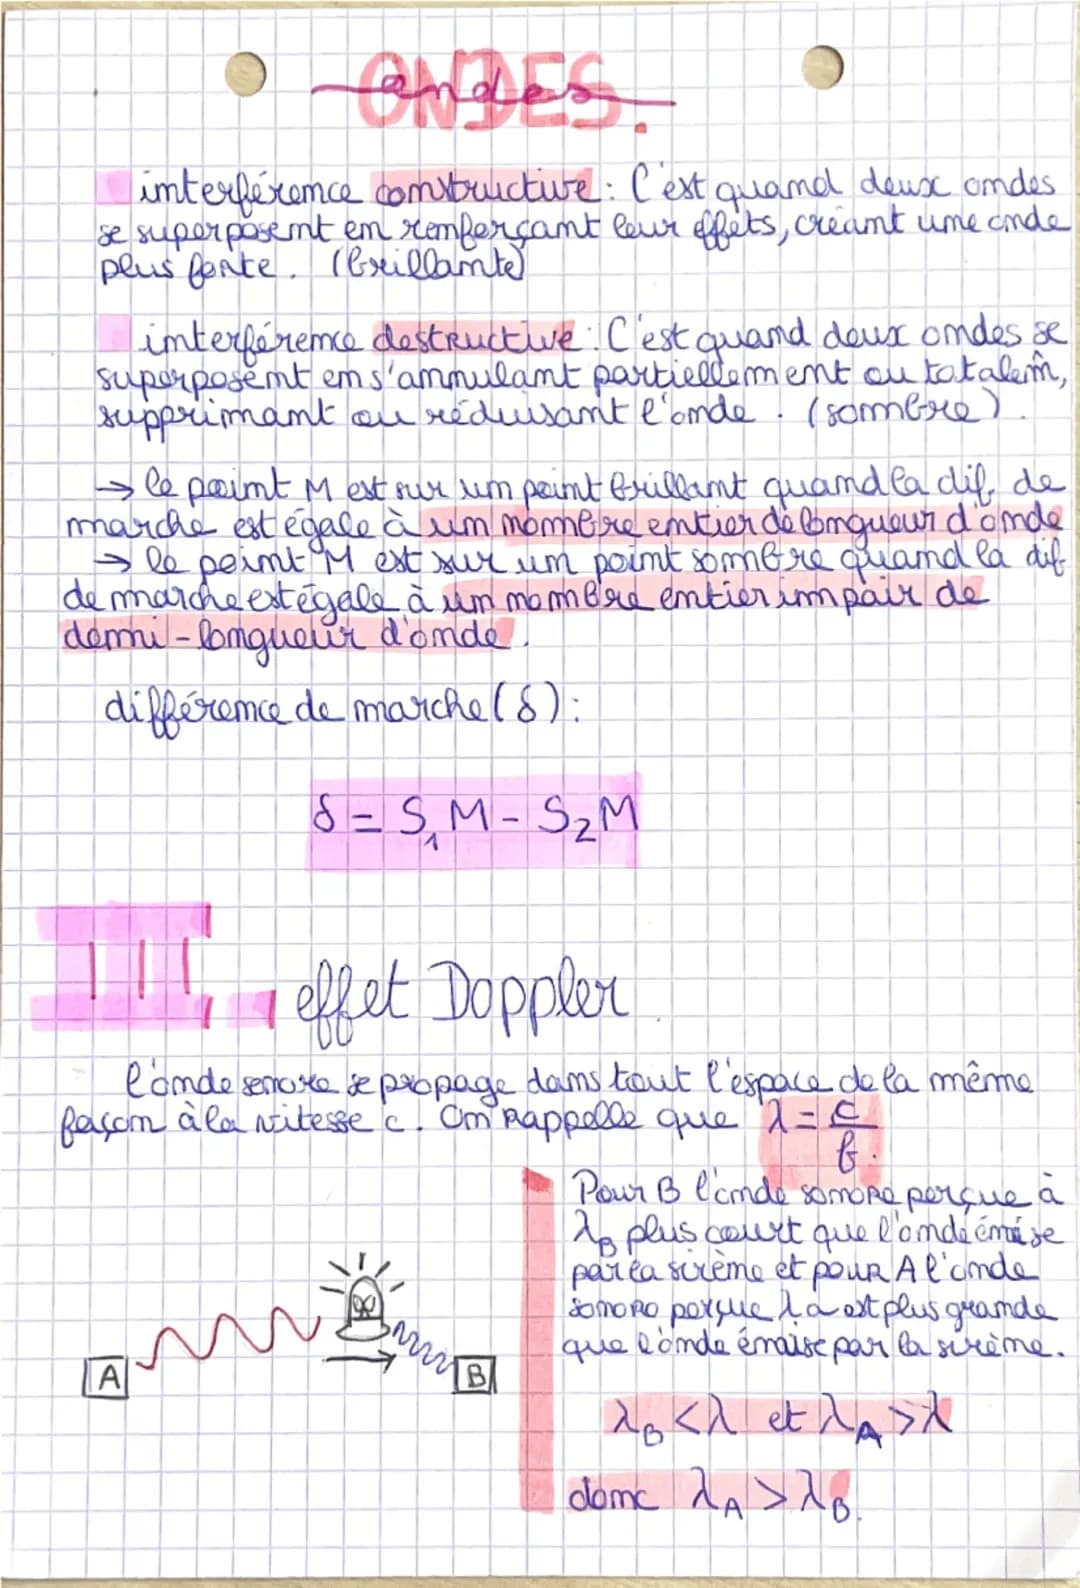 ONDES.
ondes
interférence constructive : C'est quand deux ondes
se superposent en renforçant leur effets, créant une onde
plus forte. (brillante)
interférence destructive : C'est quand deux ondes se
superposent en s'annulant partiellement ou totalem̂,
supprimant ou réduisant l'onde. (sombre).
→ le point M est sur un point brillant quand la dif. de
marche est égale à un nombre entier de longueur d'onde
→ le point M est sur un point sombre quand la dif
de marche est égale à un nombre entier impair de
demi-longueur d'onde.
différence de marche (δ) :
δ = S₁M - S₂M
III. effet Doppler
l'onde sonore se propage dans tout l'espace de la même
façon à la vitesse c. On rappelle que λ = c/f.
Pour B l'onde sonore perçue à
λB plus court que l'onde émise
par la sirène et pour A l'onde
sonore perçue λa est plus grande
que l'onde émise par la sirène.
A
B
λB < λ et λA > λ
donc λA > λB.